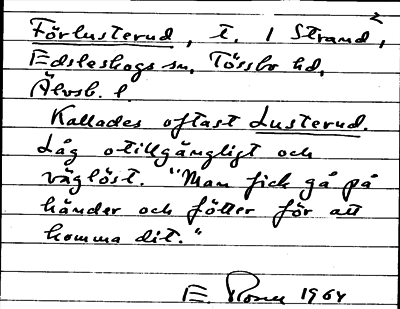 2
Förlusterud, t. 1 Strand,
Edsleskogs sn, Tössbo hd,
Älvsb. l.
Kallades oftast Lusterud.
Låg otillgängligt och
väglöst. "Man fick gå på
händer och fötter för att
komma dit."
E. Rosén 1964